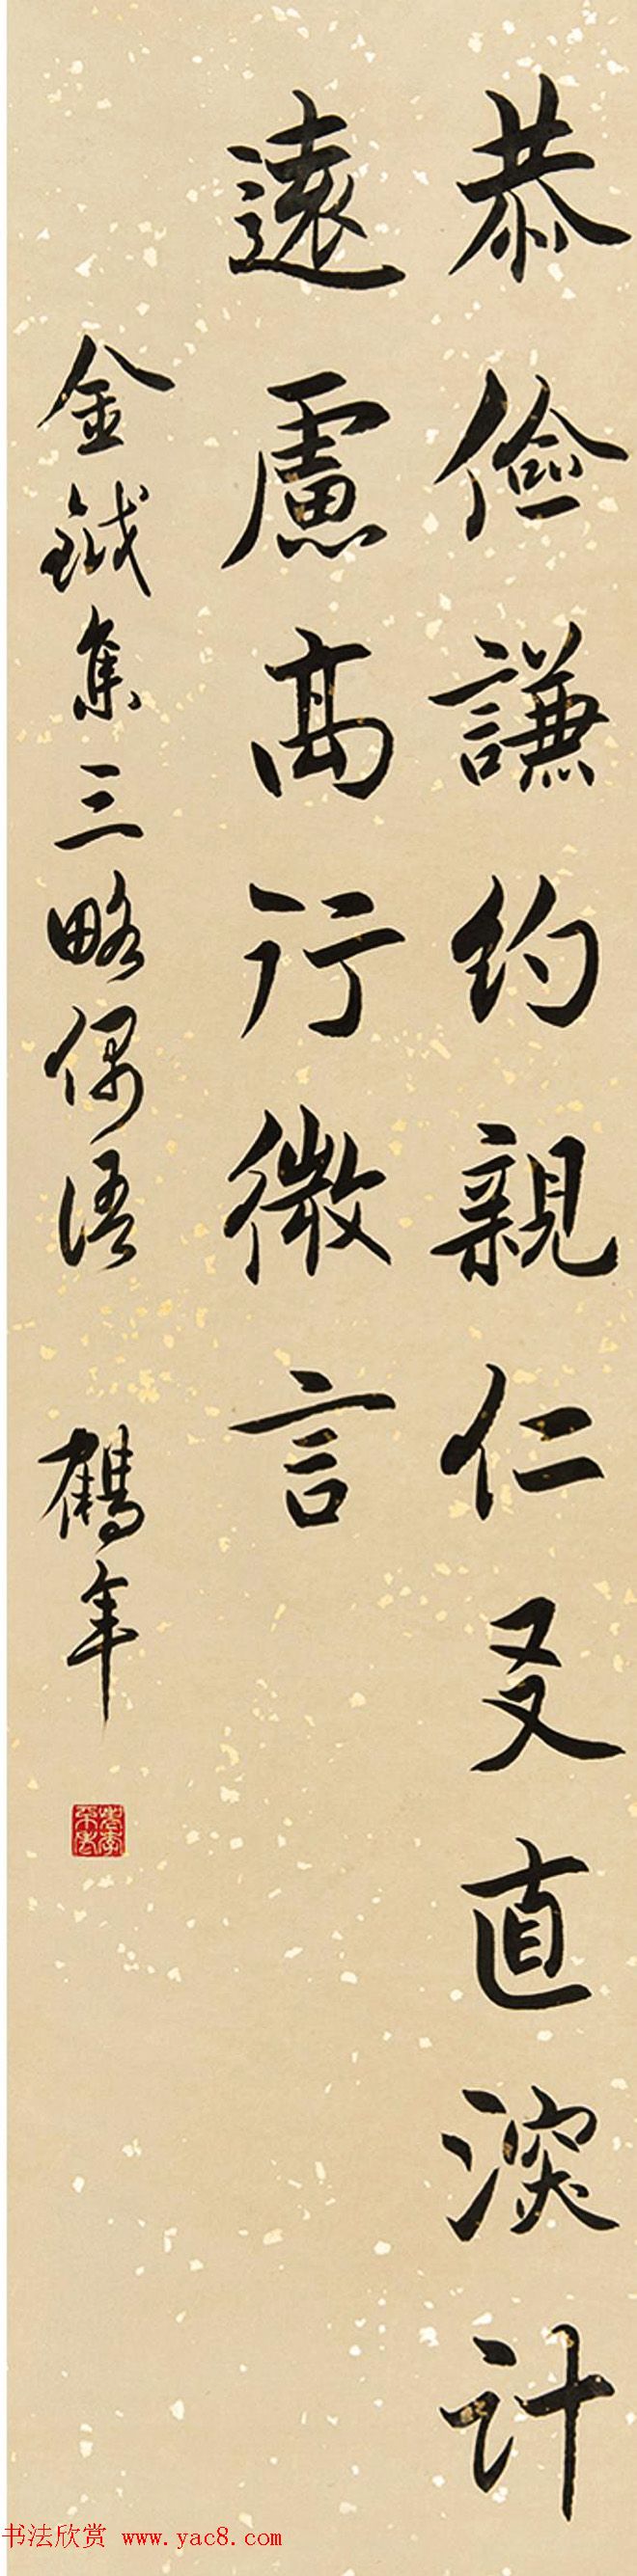 恭儉謙約親仁友直深計
遠慮高行微言
金鉞集三略偶語
鶴年
书法欣赏 www.yac8.com